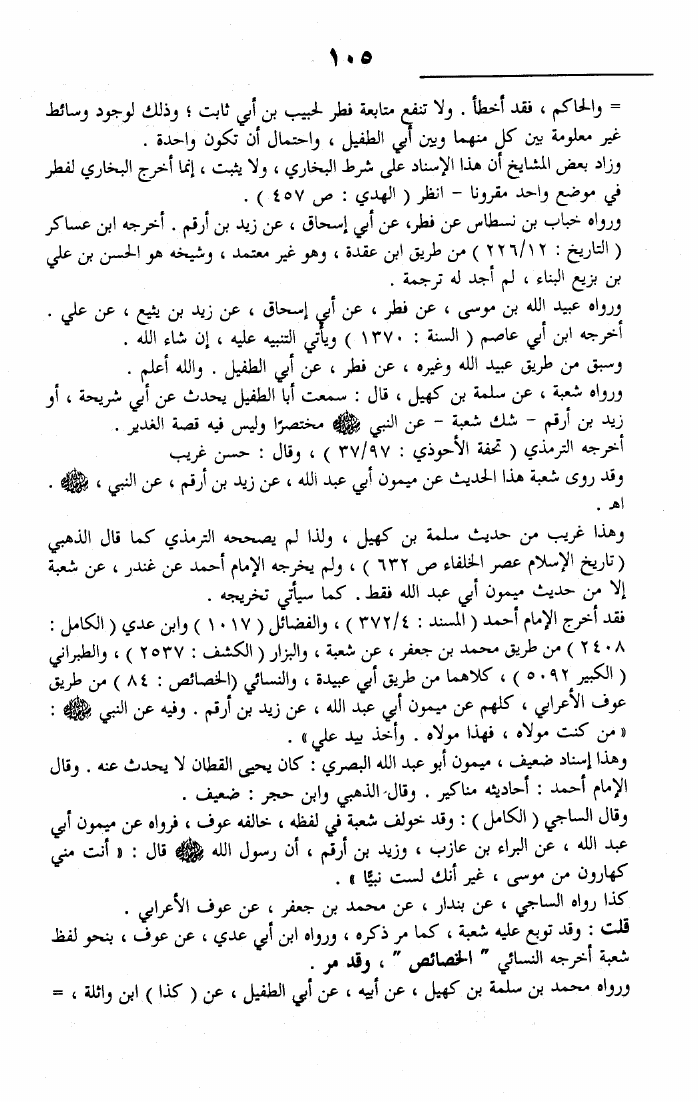 ١٠٥
= والحاكم ، فقد أخطأ . ولا تنفع متابعة فطر لحبيب بن أبي ثابت ؛ وذلك لوجود وسائط
غير معلومة بين كل منهما وبين أبي الطفيل ، واحتمال أن تكون واحدة .
وزاد بعض المشايخ أن هذا الإسناد على شرط البخاري ، ولا يثبت ، إنما أخرج البخاري لفطر
في موضع واحد مقرونا - انظر ( الهدي : ص ٤٥٧ ) .
ورواه خباب بن نسطاس عن فطر، عن أبي إسحاق ، عن زيد بن أرقم . أخرجه ابن عساكر
( التاريخ : ٢٢٦/١٢ ) من طريق ابن عقدة ، وهو غير معتمد ، وشيخه هو الحسن بن علي
بن بزيع البناء ، لم أجد له ترجمة .
ورواه عبيد الله بن موسى ، عن فطر ، عن أبي إسحاق ، عن زيد بن يثيع ، عن علي .
أخرجه ابن أبي عاصم ( السنة : ١٣٧٠ ) ويأتي التنبيه عليه ، إن شاء الله .
وسبق من طريق عبيد الله وغيره ، عن فطر ، عن أبي الطفيل . والله أعلم .
ورواه شعبة ، عن سلمة بن كهيل ، قال : سمعت أبا الطفيل يحدث عن أبي شريحة ، أو
زيد بن أرقم - شك شعبة - عن النبي ﷺ مختصرًا وليس فيه قصة الغدير .
أخرجه الترمذي ( تحفة الأحوذي : ٣٧/٩٧ ) ، وقال : حسن غريب
وقد روى شعبة هذا الحديث عن ميمون أبي عبد الله ، عن زيد بن أرقم ، عن النبي ، ﷺ .
اهـ .
وهذا غريب من حديث سلمة بن كهيل ، ولذا لم يصححه الترمذي كما قال الذهبي
(تاريخ الإسلام عصر الخلفاء ص ٦٣٢ ) ، ولم يخرجه الإمام أحمد عن غندر ، عن شعبة
إلا من حديث ميمون أبي عبد الله فقط . كما سيأتي تخريجه .
فقد أخرج الإمام أحمد ( المسند : ٣٧٢/٤ ) ، والفضائل ( ١٠١٧ ) وابن عدي ( الكامل :
٢٤٠٨ ) من طريق محمد بن جعفر ، عن شعبة ، والبزار ( الكشف : ٢٥٣٧ ) ، والطبراني
( الكبير ٥٠٩٢ ) ، كلاهما من طريق أبي عبيدة ، والنسائي (الخصائص : ٨٤ ) من طريق
عوف الأعرابي ، كلهم عن ميمون أبي عبد الله ، عن زيد بن أرقم . وفيه عن النبي ﷺ :
« من كنت مولاه ، فهذا مولاه . وأخذ بيد علي » .
وهذا إسناد ضعيف ، ميمون أبو عبد الله البصري : كان يحيى القطان لا يحدث عنه . وقال
الإمام أحمد : أحاديثه مناكير . وقال الذهبي وابن حجر : ضعيف .
وقال الساجي ( الكامل ) : وقد خولف شعبة في لفظه ، خالفه عوف ، فرواه عن ميمون أبي
عبد الله ، عن البراء بن عازب ، وزيد بن أرقم ، أن رسول الله ﷺ قال : « أنت مني
كهارون من موسى ، غير أنك لست نبيًّا » .
كذا رواه الساجي ، عن بندار ، عن محمد بن جعفر ، عن عوف الأعرابي .
قلت : وقد توبع عليه شعبة ، كما مر ذكره ، ورواه ابن أبي عدي ، عن عوف ، بنحو لفظ
شعبة أخرجه النسائي " الخصائص " ، وقد مر .
ورواه محمد بن سلمة بن كهيل ، عن أبيه ، عن أبي الطفيل ، عن ( كذا ) ابن واثلة ، =